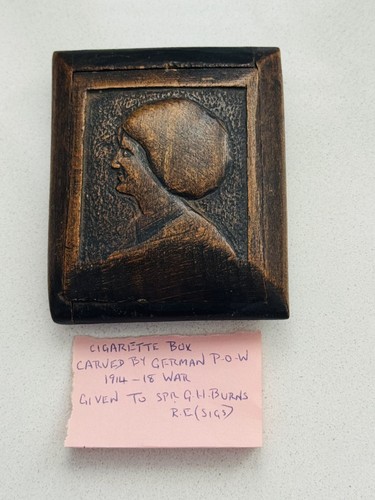 CIGARETTE BOX
CARVED BY GERMAN P-O-W
1914-18 WAR
GIVEN TO SPR G.H.BURNS
R.E(SIGS)